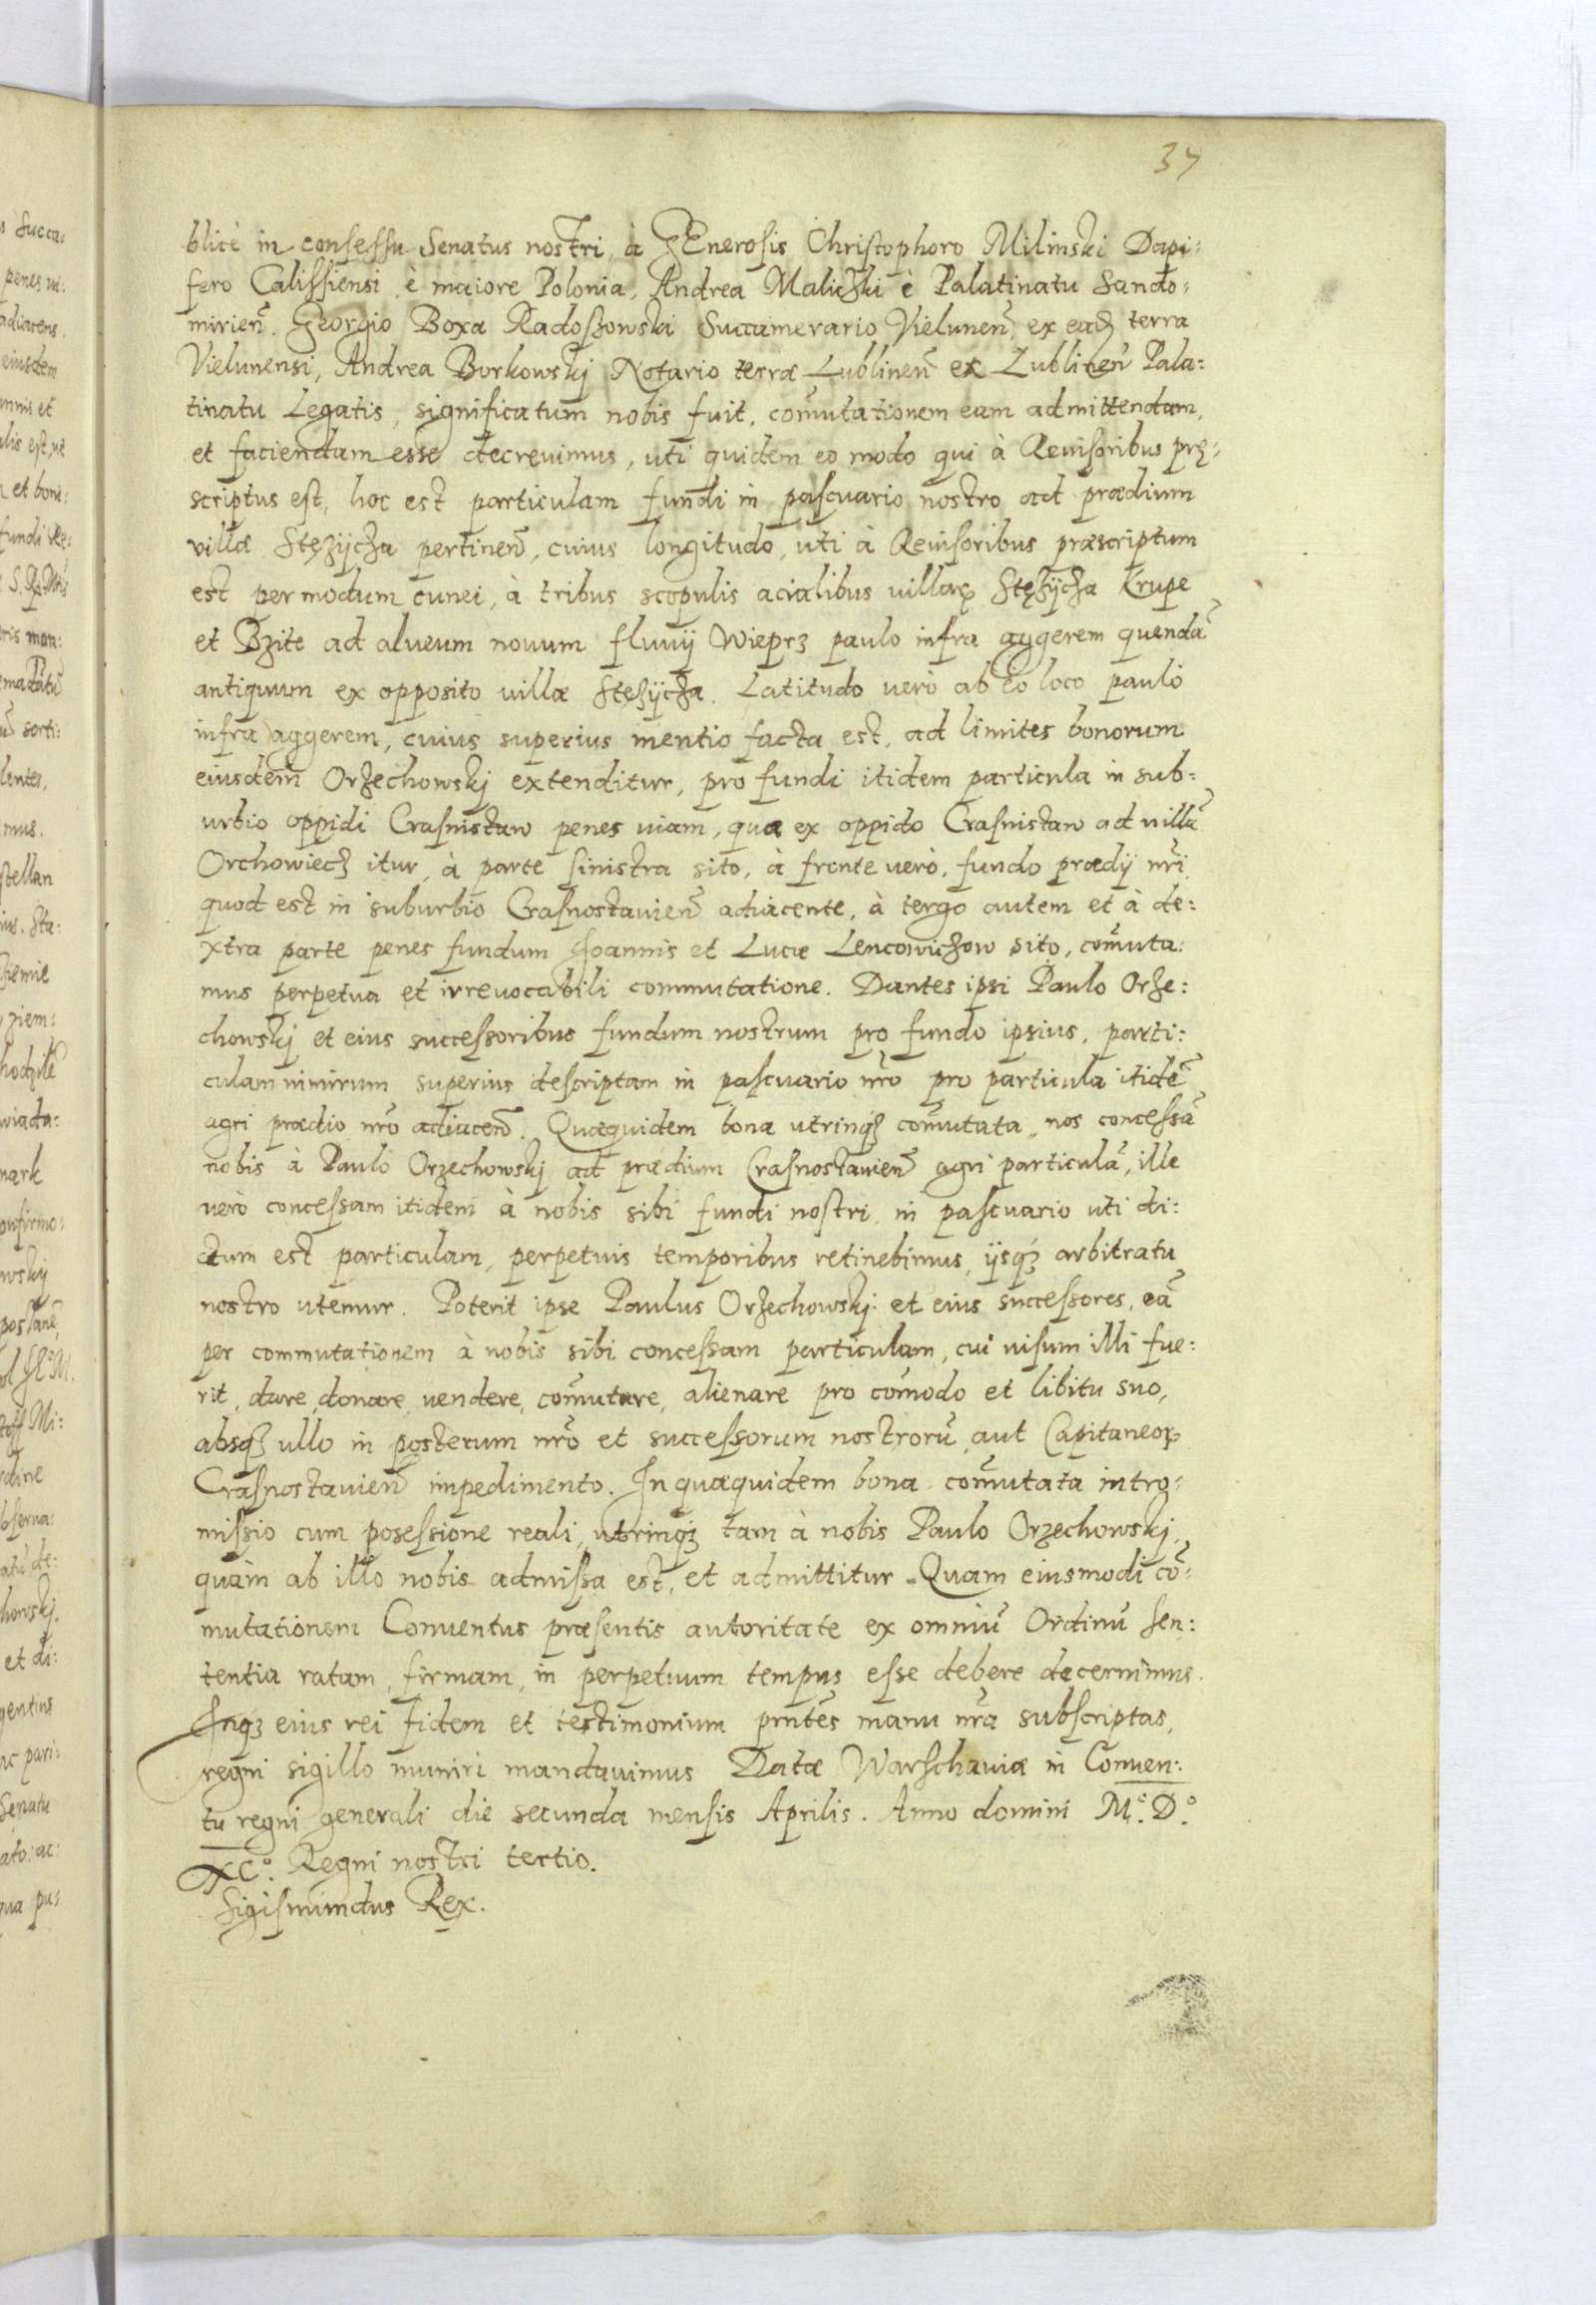 37
blicè in consessu Senatus nostri, à GEnerosis Christophoro Milinski Dapi:
fero Calissiensi, è maiore Polonia, Andrea Maliczki è Palatinatu Sando:
mirien̄. Georgio Boxa Radoszowski Succamerario Vielunen̄, ex eadꝫ terra
Vielunensi, Andrea Borkowskj Notario terræ Lublinen̄ ex Lublinen̄ Pala:
tinatu Legatis, significatum nobis fuit, com̄utationem eam admittendam,
et faciendam esse decrevimus, uti quidem eo modo qui à Reuisoribus prę:
scriptus est, hoc est particulam fundi in pascuario nostro ad prædium
villæ Stęzÿcza pertinen̄, cuius longitudo, uti à Reuisoribus præscriptum
est per modum cunei, à tribus scopulis acialibus villarꝝ Stężÿcza Krupe
et Bzite ad alueum nouum fluuÿ Wieprz paulo infra aggerem quendā
antiquum ex opposito villæ Stężÿcza. Latitudo uerò ab eo loco paulò
infra aggerem, cuius superius mentio facta est, ad limites bonorum
eiusdem Orzechowskj extenditur, pro fundi itidem particula in sub:
urbio oppidi Crasnistaw penes uiam, qua ex oppido Crasnistaw ad uillā
Orchowiecz itur, à parte sinistra sito, à fronte uerò, fundo prædÿ nr̄i
quod est in suburbio Crasnostauien̄ adiacente, à tergo autem et à de:
xtra parte penes fundum Joannis et Lucæ Lencowiczow sito, com̄uta:
mus perpetua et irreuocabili commutatione. Dantes ipsi Paulo Orze:
chowskj et eius successoribus fundum nostrum pro fundo ipsius, parti:
culam nimirum superius descriptam in pascuario nr̄o pro particula itidē
agri prædio nr̄o adiacen̄. Quæquidem bona utrinqꝫ com̄utata, nos concessā
nobis à Paulo Orzechowskj ad prædium Crasnostauien̄ agri particulā, ille
uerò concessam itidem à nobis sibi fundi nostri in pascuario uti di:
ctum est particulam, perpetuis temporibus retinebimus, ÿsqꝫ arbitratu
nostro utemur. Poterit ipse Paulus Orzechowskj et eius successores, eā
per commutationem à nobis sibi concessam particulam, cui uisum illi fue:
rit, dare, donare, uendere, com̄utare, alienare pro com̄odo et libitu suo,
absqꝫ ullo in posterum nr̄o et successorum nostrorū, aut Capitaneorꝝ
Crasnostauien̄ impedimento. In quæquidem bona com̄utata intro:
missio cum posessione reali, utrinqꝫ tam à nobis Paulo Orzechowskj,
quàm ab illo nobis admissa est, et admittitur. Quam eiusmodi cō:
mutationem Conuentus præsentis autoritate ex omniū Ordinū sen:
tentia ratam, firmam, in perpetuum tempus esse debere decernimus.
Inqꝫ eius rei fidem et testimonium prn̄tes manu nr̄a subscriptas,
regni sigillo muniri mandauimus Datæ Warschauiæ in Conuen:
tu regni generali die secunda mensis Aprilis. Anno domini M.° D.°
XC.° Regni nostri tertio.
Sigismundus Rex.